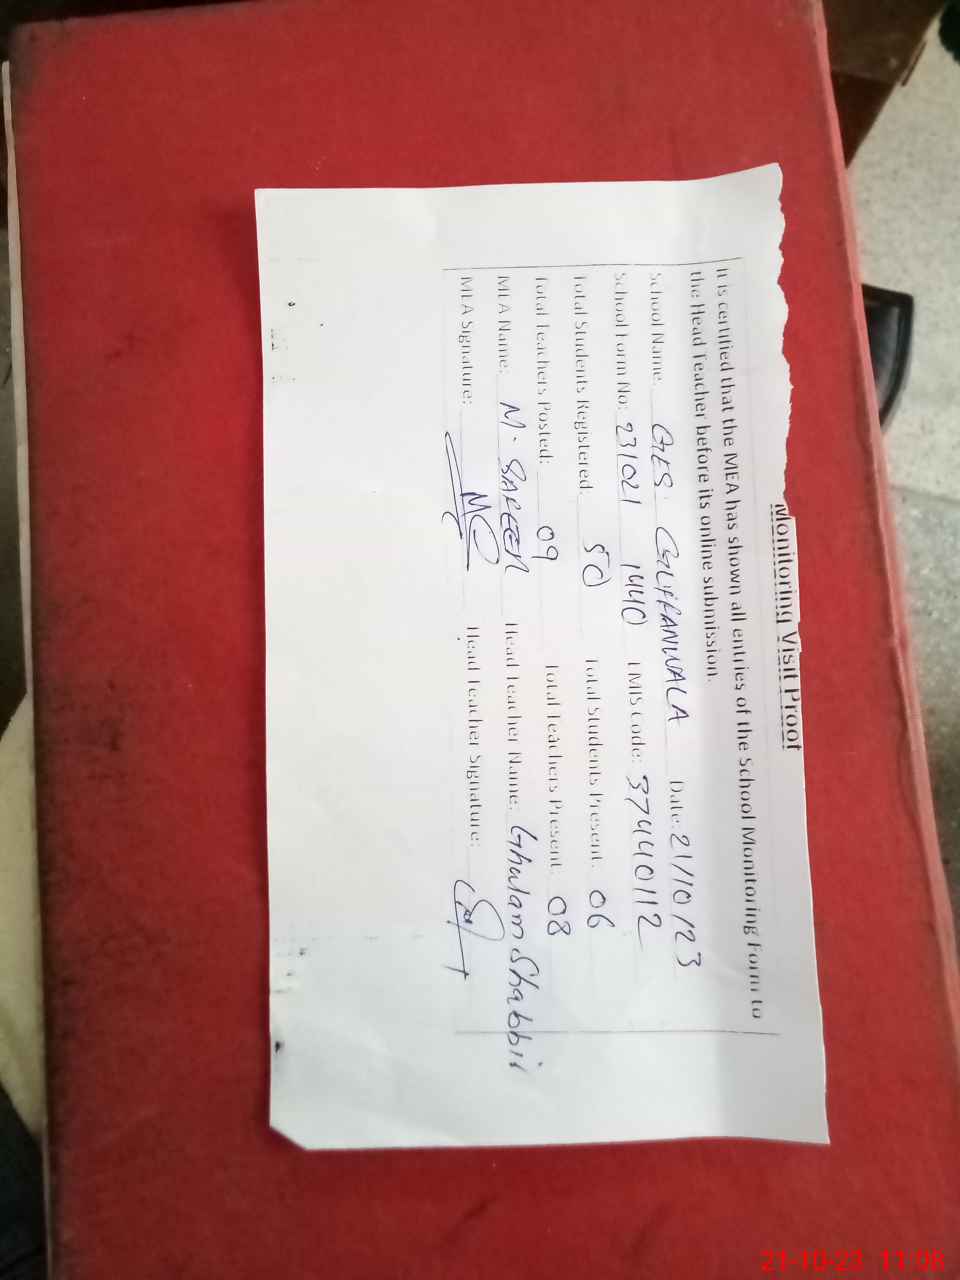 Monitoring Visit Proof
It is certified that the MEA has shown all entries of the School Monitoring Form to
the Head Teacher before its online submission.
School Name: GES Date: 21/10/23
School Form No: 231021 1440 EMIS Code: 37440112
Total Students Registered: 50 Total Students Present: 06
Total Teachers Posted: 09 Total Teachers Present: 08
MEA Name: M. Head Teacher Name: Ghulam Shabbir
MEA Signature: Head Teacher Signature:
21-10-23 11:08